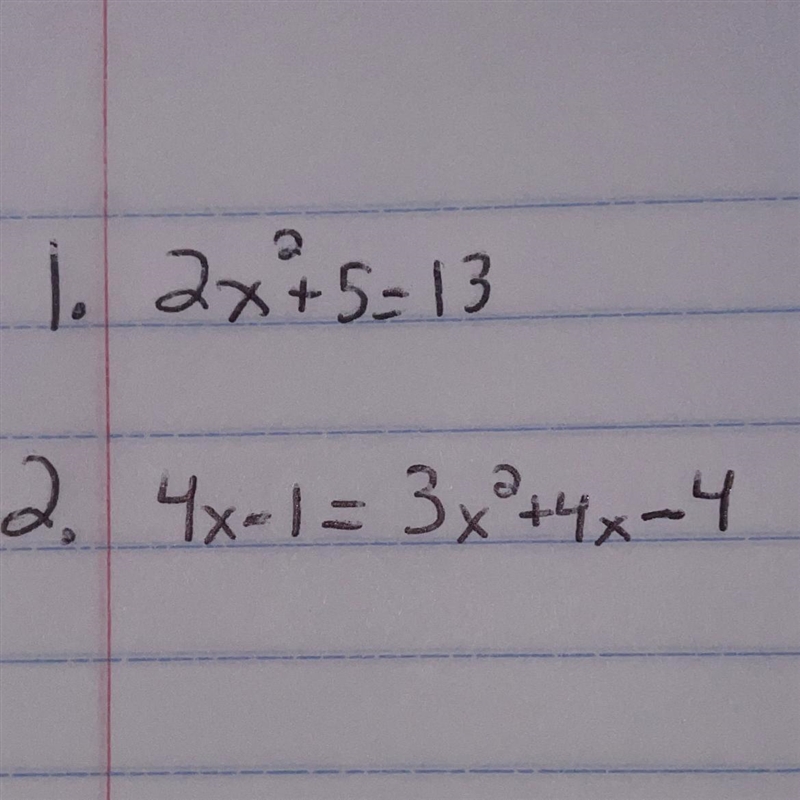 1. 2x²+5=13
2. 4x-1=3x²+4x-4